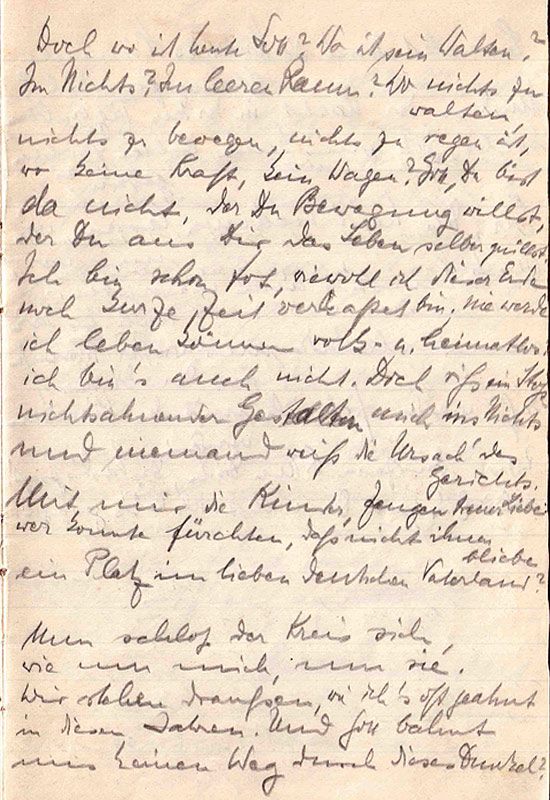 Doch wo ist heute Gott? Wo ist sein Walten?
Im Nichts? Im leeren Raum? Wo nichts zu
walten,
nichts zu bewegen, nichts zu regen ist,
wo keine Kraft, kein Wagen? Gott, Du bist
da nicht, der Du Bewegung willst,
der Du aus Dir das Leben selber quillst.
Ich bin schon tot, wiewohl ich dieser Erde
noch kurze Zeit verhaftet bin. Nie werde
ich leben können volk- u. heimatlos.
ich bin's auch nicht. Doch riß ein
nichtsahnender Gestalten mich ins Nichts
und niemand weiß die Ursach' des
Gerichts.
Mit mir die Kinder, Zeugen treuer Liebe
wer konnte fürchten, daß nicht ihnen
bliebe
ein Platz im lieben deutschen Vaterland?
Nun schloß der Kreis sich,
wie um mich, um sie.
Wir stehen draußen, wie ich's oft geahnt
in diesen Jahren. Und Gott bahnt
uns keinen Weg durch dieses Dunkel?